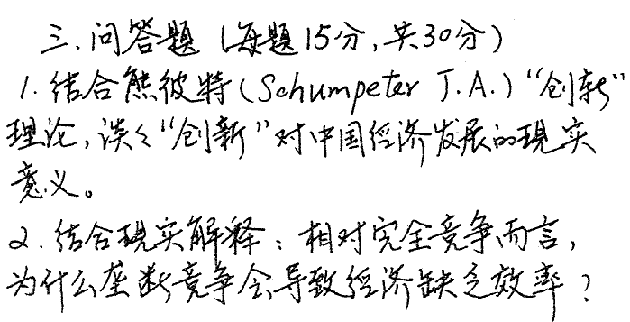 三.问答题(每题15分,共30分)
1.结合熊彼特(Schumpeter J.A.)“创新”
理论,谈谈“创新”对中国经济发展的现实
意义。
2.结合现实解释:相对完全竞争而言,
为什么垄断竞争会导致经济缺乏效率?